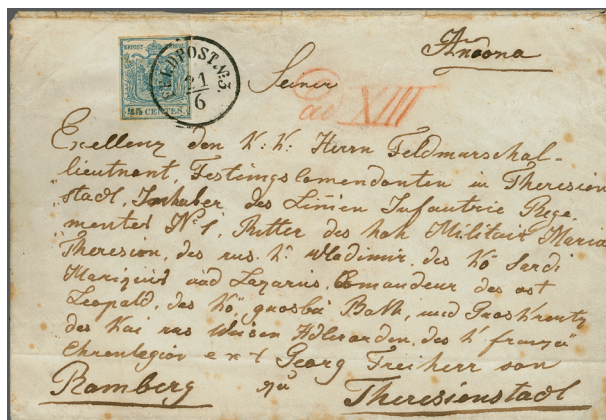 Ancona
FELDPOST. №3.
21
6
45 CENTES
Seiner
ad XIII
Excellenz den K: K: Herrn Feldmarschal-
lieutnant, Festungscomendanten in Theresien
stadt, Innhaber des Linien Infantrie Rege-
mentes № 1, Ritter des hoh Militair Maria
Theresien, des rus. K: Wladimir, des Kö Sardi
Mariziud und Lazarus, Comandeur des ost
Leopold, des Kö, grosbri Bath, und Groskreutz
des Kai rus Weisen Adlerorden, des K französ
Ehrenlegion ext Georg Freiherr von
Ramberg zu Theresienstadt